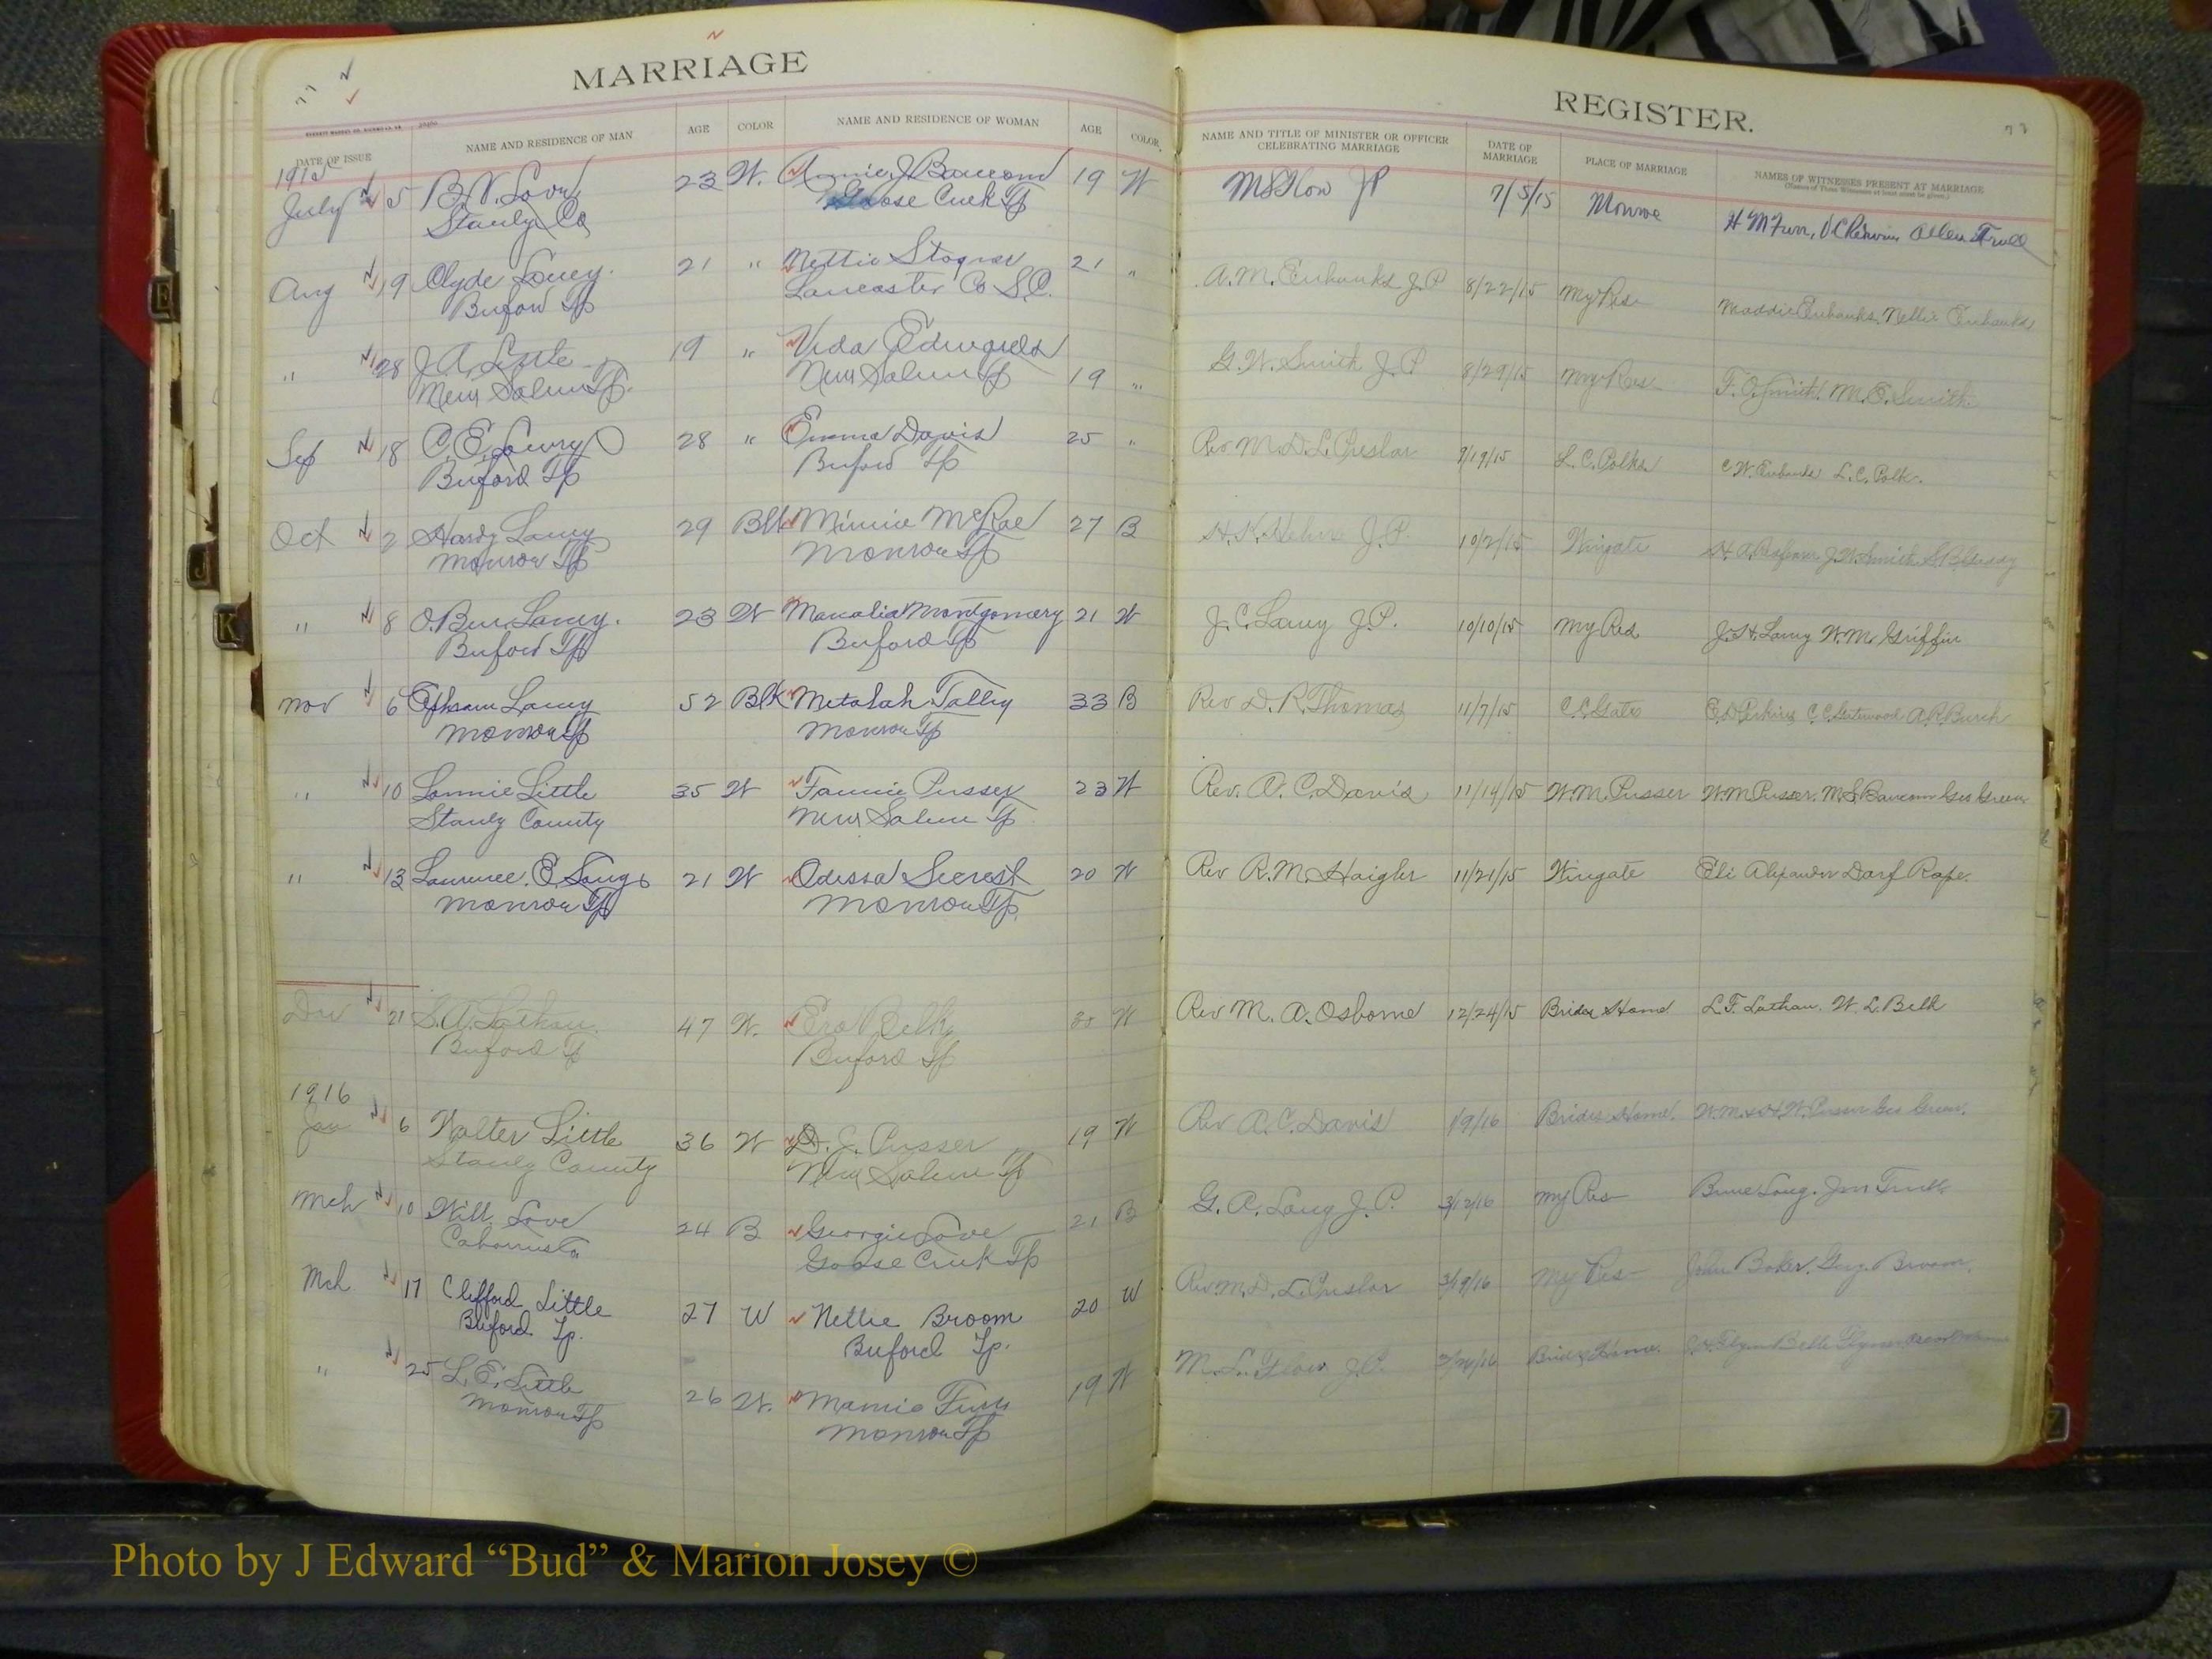 MARRIAGE
77
DATE OF ISSUE NAME AND RESIDENCE OF MAN AGE COLOR NAME AND RESIDENCE OF WOMAN AGE COLOR
1915
July 5 B.V. Love 23 W. Annie J Baucom 19 W
Stanly Co Goose Creek Tp
Aug 19 Clyde Laney. 21 " Nettie Stogner 21 "
Buford Tp Lancaster Co S.C.
" 28 J.A. Little 19 " Vida Edwards
New Salem Tp. New Salem Tp 19 "
Sep 18 C.E. Lowry 28 " Emma Davis 25 "
Buford Tp Buford Tp
Oct 2 Hardy Laney 29 Blk Minnie McRae 27 B
Monroe Tp Monroe Tp
" 8 O. Ben Laney. 23 W Montgomery 21 W
Buford Tp Buford Tp
Nov 6 Ephram Laney 52 Blk Metalah Talley 33 B
Monroe Tp Monroe Tp
" 10 Lonnie Little 35 W Fannie Pusser 23 W
Stanly County New Salem Tp
" 13 Laurence E. Long 21 W Odessa Secrest 20 W
Monroe Tp Monroe Tp.
Dec 21 S.A. Lathan 47 W. Belk 30 W
Buford Tp Buford Tp
1916
Jan 6 Walter Little 36 W D.J. Pusser 19 W
Stanly County New Salem Tp
Mch 10 Will Love 24 B Georgie Love 21 B
Goose Creek Tp
Mch 17 Clifford Little 27 W Nettie Broom 20 W
Buford Tp. Buford Tp.
" 25 L.E. Little 26 W. Mamie Furr 19 W
Monroe Tp Monroe Tp
REGISTER.
77
NAME AND TITLE OF MINISTER OR OFFICER CELEBRATING MARRIAGE DATE OF MARRIAGE PLACE OF MARRIAGE NAMES OF WITNESSES PRESENT AT MARRIAGE
(Names of Three Witnesses at least must be given.)
M L Flow JP 7/5/15 Monroe H M Furr, Allen Trull
A.M. Eubanks J.P 8/22/15 My Res Maddie Eubanks Nellie Eubanks
G.W. Smith J.P 8/29/15 My Res F.O. Smith. M.E. Smith
Rev M.D.L. Preslar 9/19/15 L.C. Polks C.W. Eubanks L.C. Polk.
H.K. Helms J.P. 10/2/15 Wingate J.W. Smith
J.C. Laney J.P. 10/10/15 My Res J.H. Laney W.M. Griffin
Rev D.R. Thomas 11/7/15 E.D. Perkins A.R. Burch
Rev. A.C. Davis 11/14/15 W.M. Pusser W.M. Pusser. M.S. Baucom Geo Green
Rev R.M. Haigler 11/21/15 Wingate Eli Alexander Darf Rape.
Rev M.A. Osborne 12/24/15 Brides Home L.F. Lathan. W.L. Belk
Rev A.C. Davis 1/9/16 Brides Home. W.M. & H.W. Pusser Geo Green.
G.A. Long J.P. 3/12/16 My Res Long. Jno Trull
Rev M.D.L. Preslar 3/19/16 My Res John Baker. Broom.
M.L. Flow J.P. Brides Home.
E
J
K
Z
Photo by J Edward “Bud” & Marion Josey ©